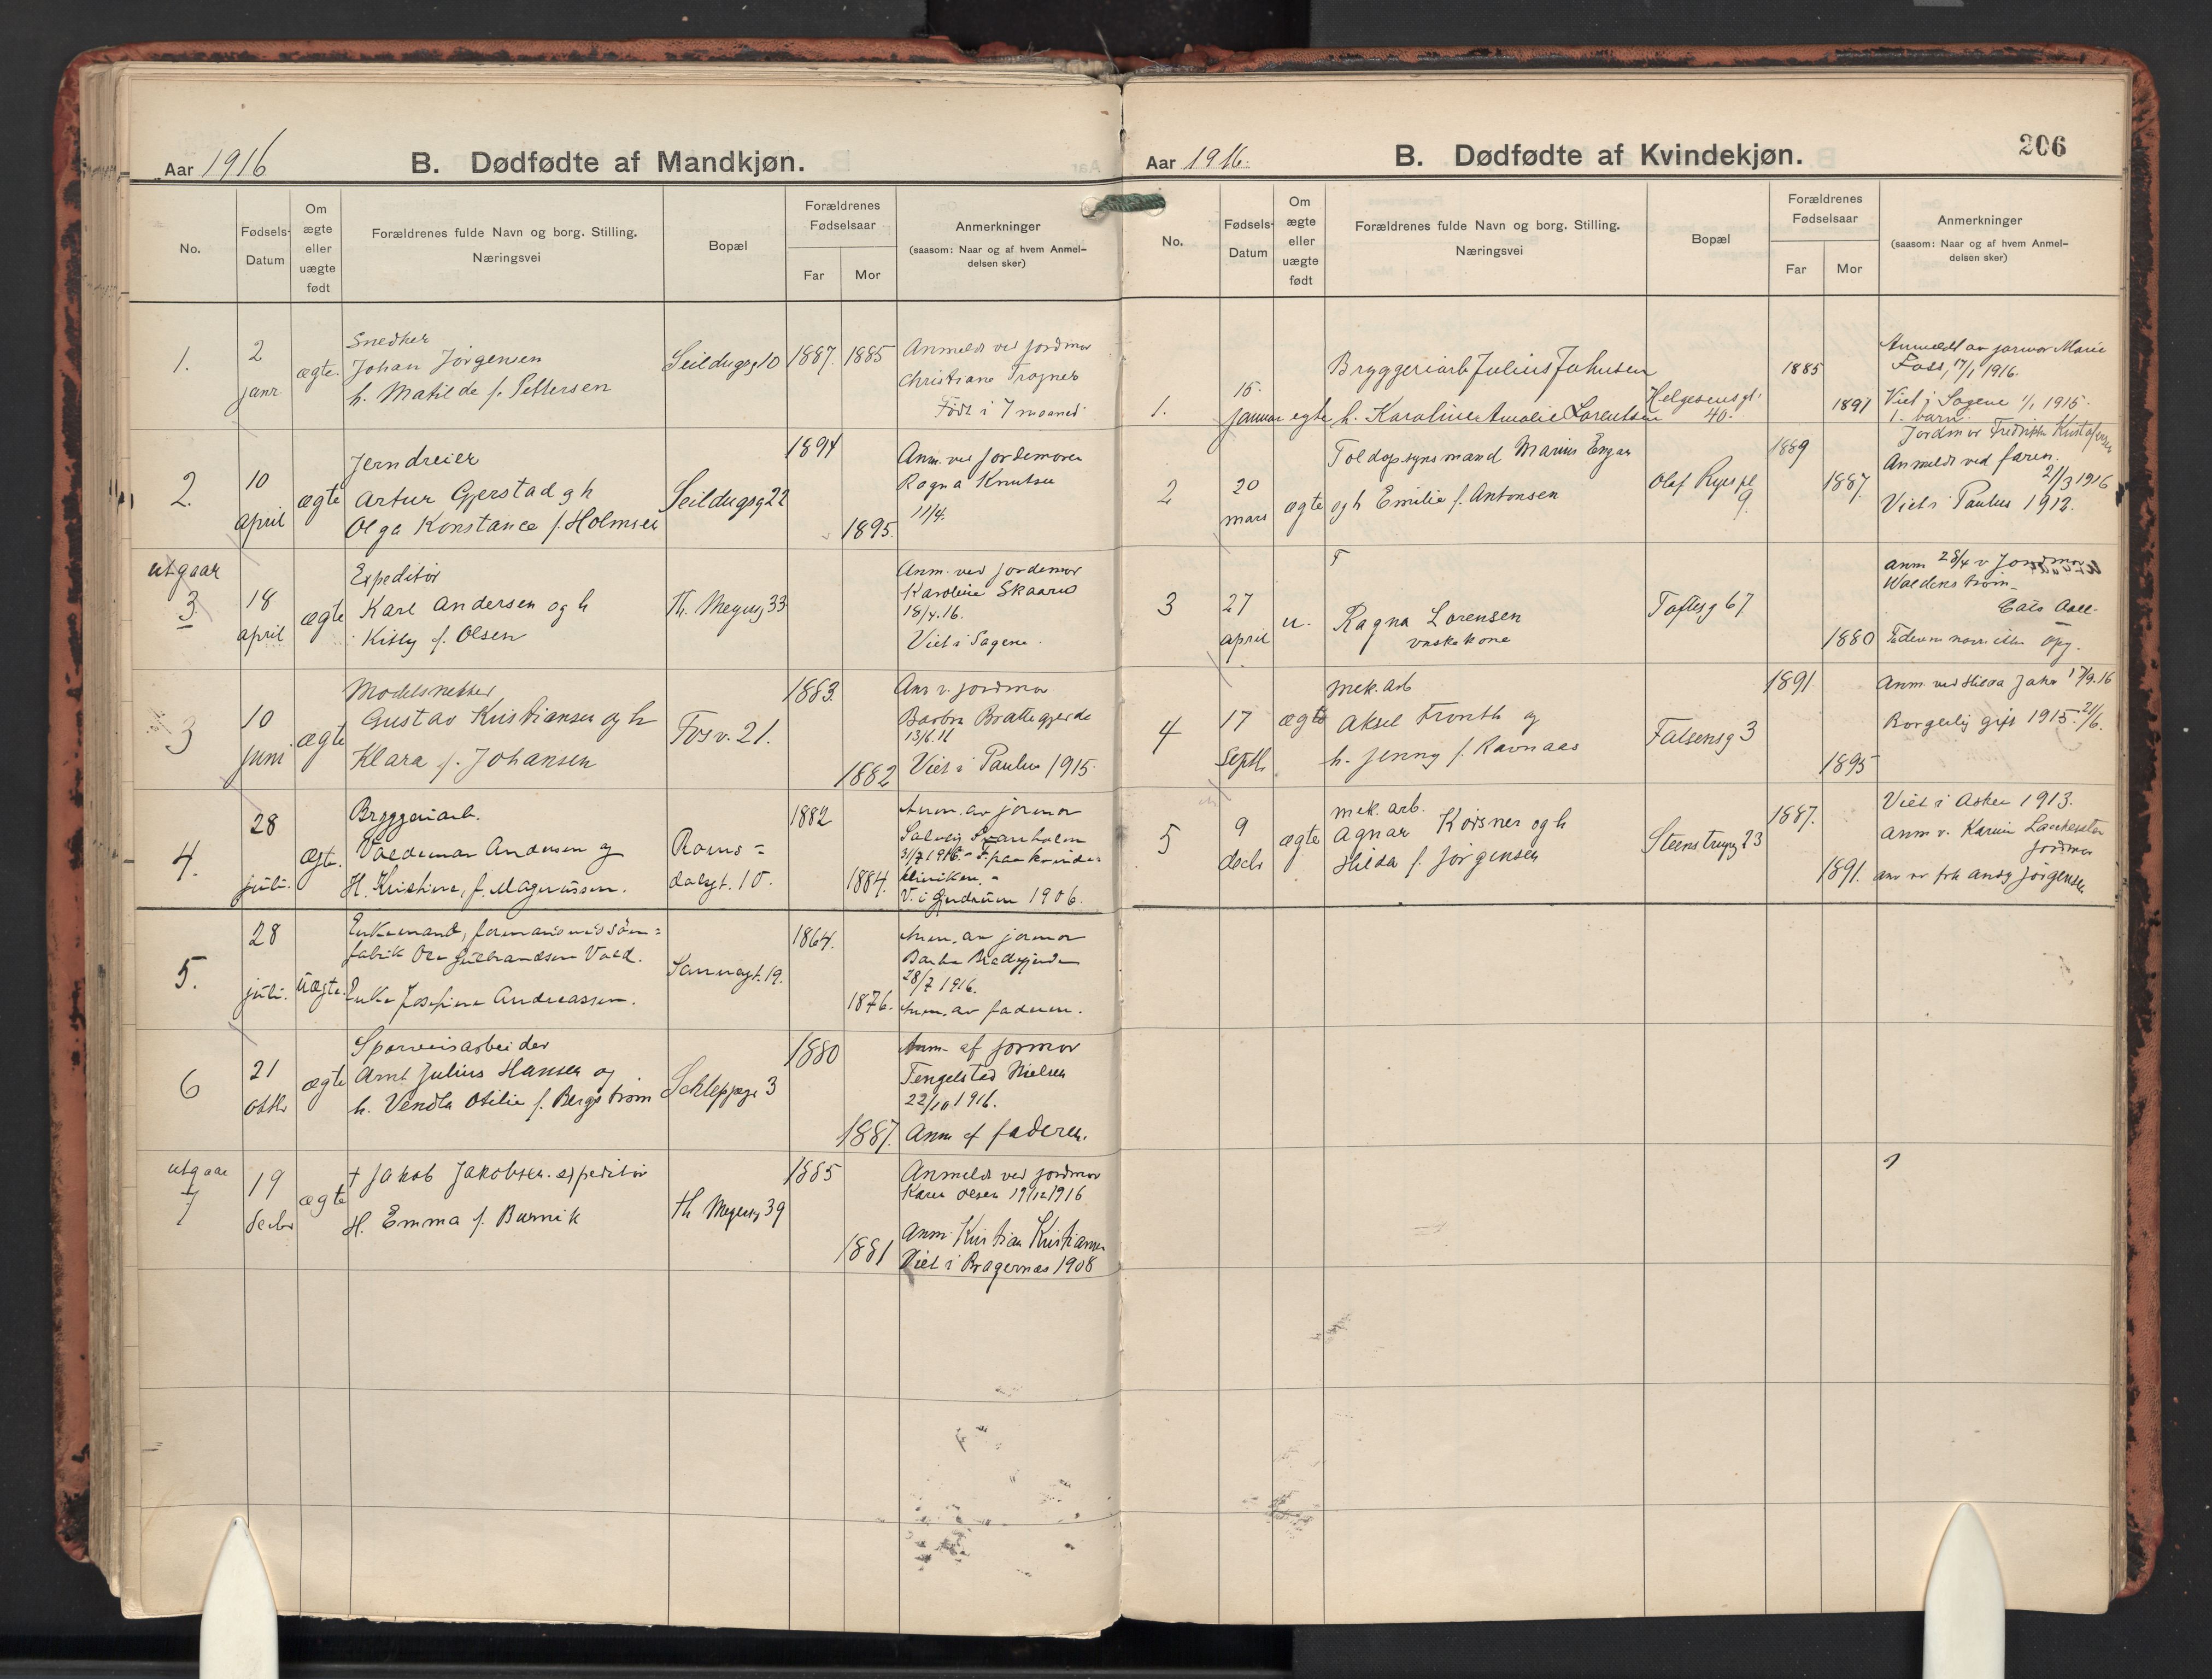 Aar 1916 B. Dødfødte af Mandkjøn.
No.
Fødsels-
Datum
Om
ægte
eller
uægte
født
Forældrenes fulde Navn og borg. Stilling.
Næringsvei
Bopæl
Forældrenes
Fødselsaar
Far Mor
Anmerkninger
(saasom: Naar og af hvem Anmel-
delsen sker)
1. 2 janr ægte.
Snedker
Johan Jörgensen
h. Matilde f. Pettersen
Seildugsg 10 1887. 1885
Anmeldt ved jordmor
Christiane
Födt i 7 maaned
2. 10 april ægte
Jerndreier
Artur Gjerstad og h
Olga Konstance f. Holmsen
Seildugsg 22 1894 1895.
Anm. ved jordemoren
Ragna Knutsen
11/4.
utgaar
3 18 april ægte
Expeditör
Karl Andersen og h
Kitty f. Olsen
Th. Meyersg 33
Anm. ved jordemor
Karoline Skaarud
18/4.16.
Viet i Sagene.
3 10 juni ægte
Modelsnekker
Gustav Kristiansen og h
Klara f. Johansen
Fosv. 21. 1883. 1882
Anm v. jordmor
Barbra Brattegjerde
13/6.16
Viet i Paulus 1915.
4. 28 juli. ægte.
Bryggeriarb.
Valdemar Andersen og
H. Kristine, f. Magnussen.
Roms=
dalsgt. 10. 1882 1884.
Anm. av jormor
Solveig Svanholm
31/7 1916. - F. paa kvinde-
klinikken. -
V. i Gjerdrum 1906.
5. 28 juli. Uægte.
Enkemand, formand ved söm=
fabrik Ole Gulbrandsen Vold.
Enke Josefine Andreassen.
Sannergt. 19. 1864. 1876.
Anm. av jormor
Barbra Brattegjerde
28/7 1916.
Anm. av faderen.
6 21 oktbr ægte
Sporveisarbeider
Arnt Julius Hansen og
h. Vendla Otilie f. Bergström
Schleppegr 3 1880 1887.
Anm. af jormor
Tengelsted Nielsen
22/10 1916.
Anm af faderen.
utgaar
7 19 decbr ægte
† Jakob Jakobsen. expeditör
H. Emma f. Burnik
Th Meyersg 39 1885 1881
Anmeldt ved jordmor
Karen Olsen 19/12 1916
Anm. Kristian Kristiansen
Viet i Bragernæs 1908
Aar 1916. B. Dødfødte af Kvindekjøn. 206
No.
Fødsels-
Datum
Om
ægte
eller
uægte
født
Forældrenes fulde Navn og borg. Stilling.
Næringsvei
Bopæl
Forældrenes
Fødselsaar
Far Mor
Anmerkninger
(saasom: Naar og af hvem Anmel-
delsen sker)
1. 15. januar egte
Bryggeriarb Julius Johnsen
h. Karoline Amalie Lorentsen
Helgesensgt.
40. 1885 1891
Anmeldt av jormor Marie
Foss, 17/1 1916.
Viet i Sagene 1/1 1915.
1. barn.
2 20 mars ægte
Toldopsynsmand Marius Engen
og h Emilie f. Antonsen
Olaf Ryes pl
9. 1889 1887.
Jordmor Fredrikke Kristofersen
Anmeldt ved faren.
21/3 1916
Viet i Paulus 1912.
3 27 april u.
Ragna Lorensen
vaskekone
Toftesg 67 1880
anm 28/4 v Jordmor
Waldenström
Faderens navn ikke opg.
4 17 Septbr ægte
mek. arb
Aksel Tronth og
h. Jenny f. Ravnaas
Falsensg 3 1891 1895
Anm. ved Hilda Jahr 17/9.16
Borgerlig gift 1915. 21/6.
5 9 decbr ægte
mek. arb.
Agnar Korsner og h
Hilda f. Jörgensen
Steenstrupg 23 1887. 1891.
Viet i Asker 1913.
Anm v. Karen
jordmor
anm av frk Jörgensen